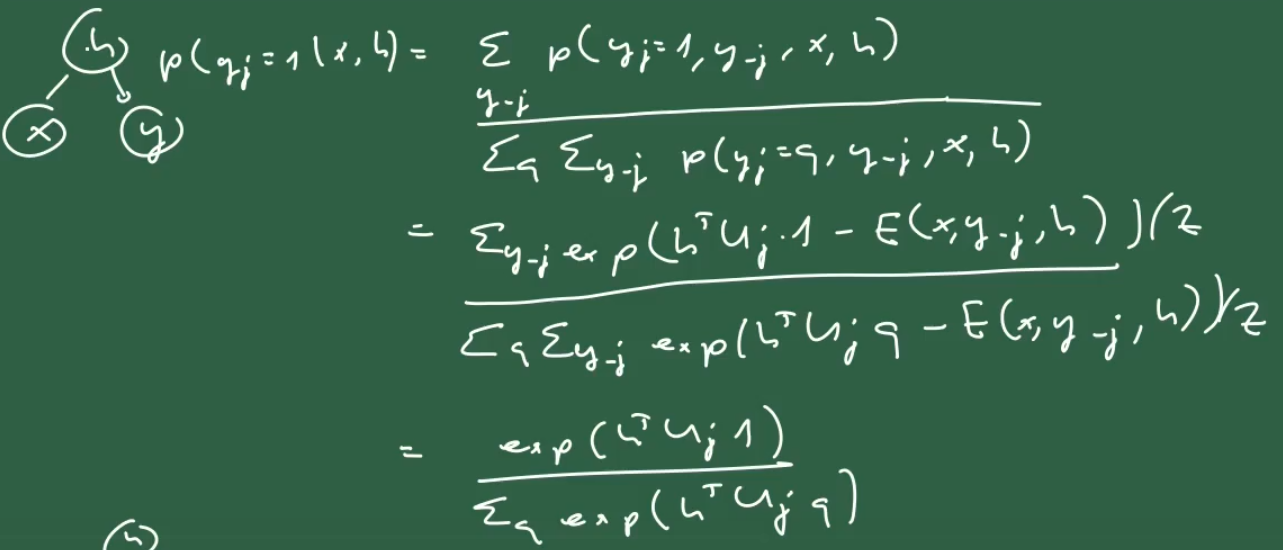 h p(yj=1|x,h) = Σ p(yj=1, y-j, x, h)
y-j
x y Σq Σy-j p(yj=q, y-j, x, h)
= Σy-j exp(hᵀUj·1 - E(x,y-j,h))/Z
Σq Σy-j exp(hᵀUjq - E(x,y-j,h))/Z
= exp(hᵀUj1)
Σq exp(hᵀUjq)
h